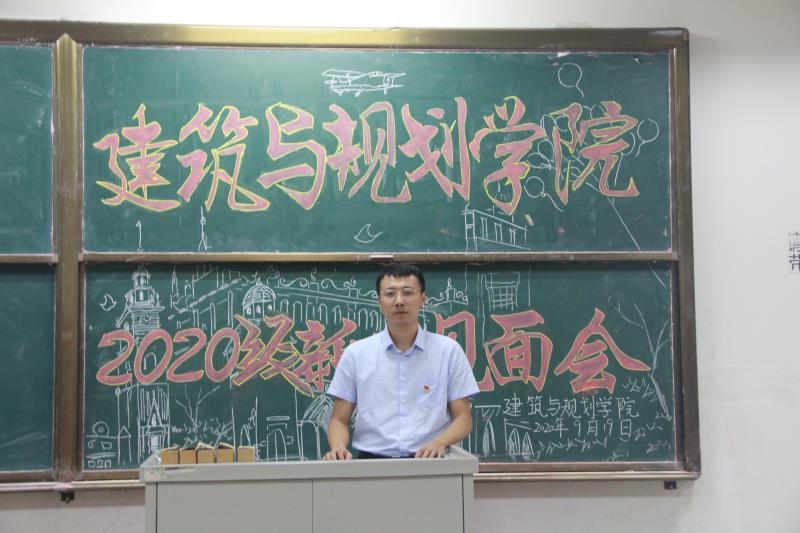 建筑与规划学院
2020级新 见面会
建筑与规划学院
2020年9月19日